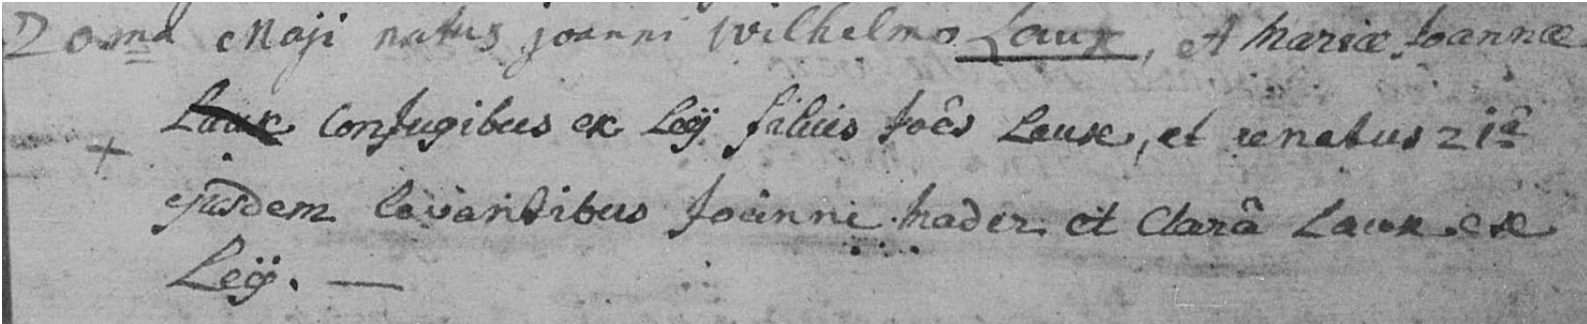 20ma Maji natus joanni wilhelmo Laux, et Mariæ Joannæ
Laux Conjugibus ex Leÿ filius Joẽs Laux, et renatus 21â
ejusdem levantibus Joanni Mader et Clarâ Laux ex
Leÿ. —